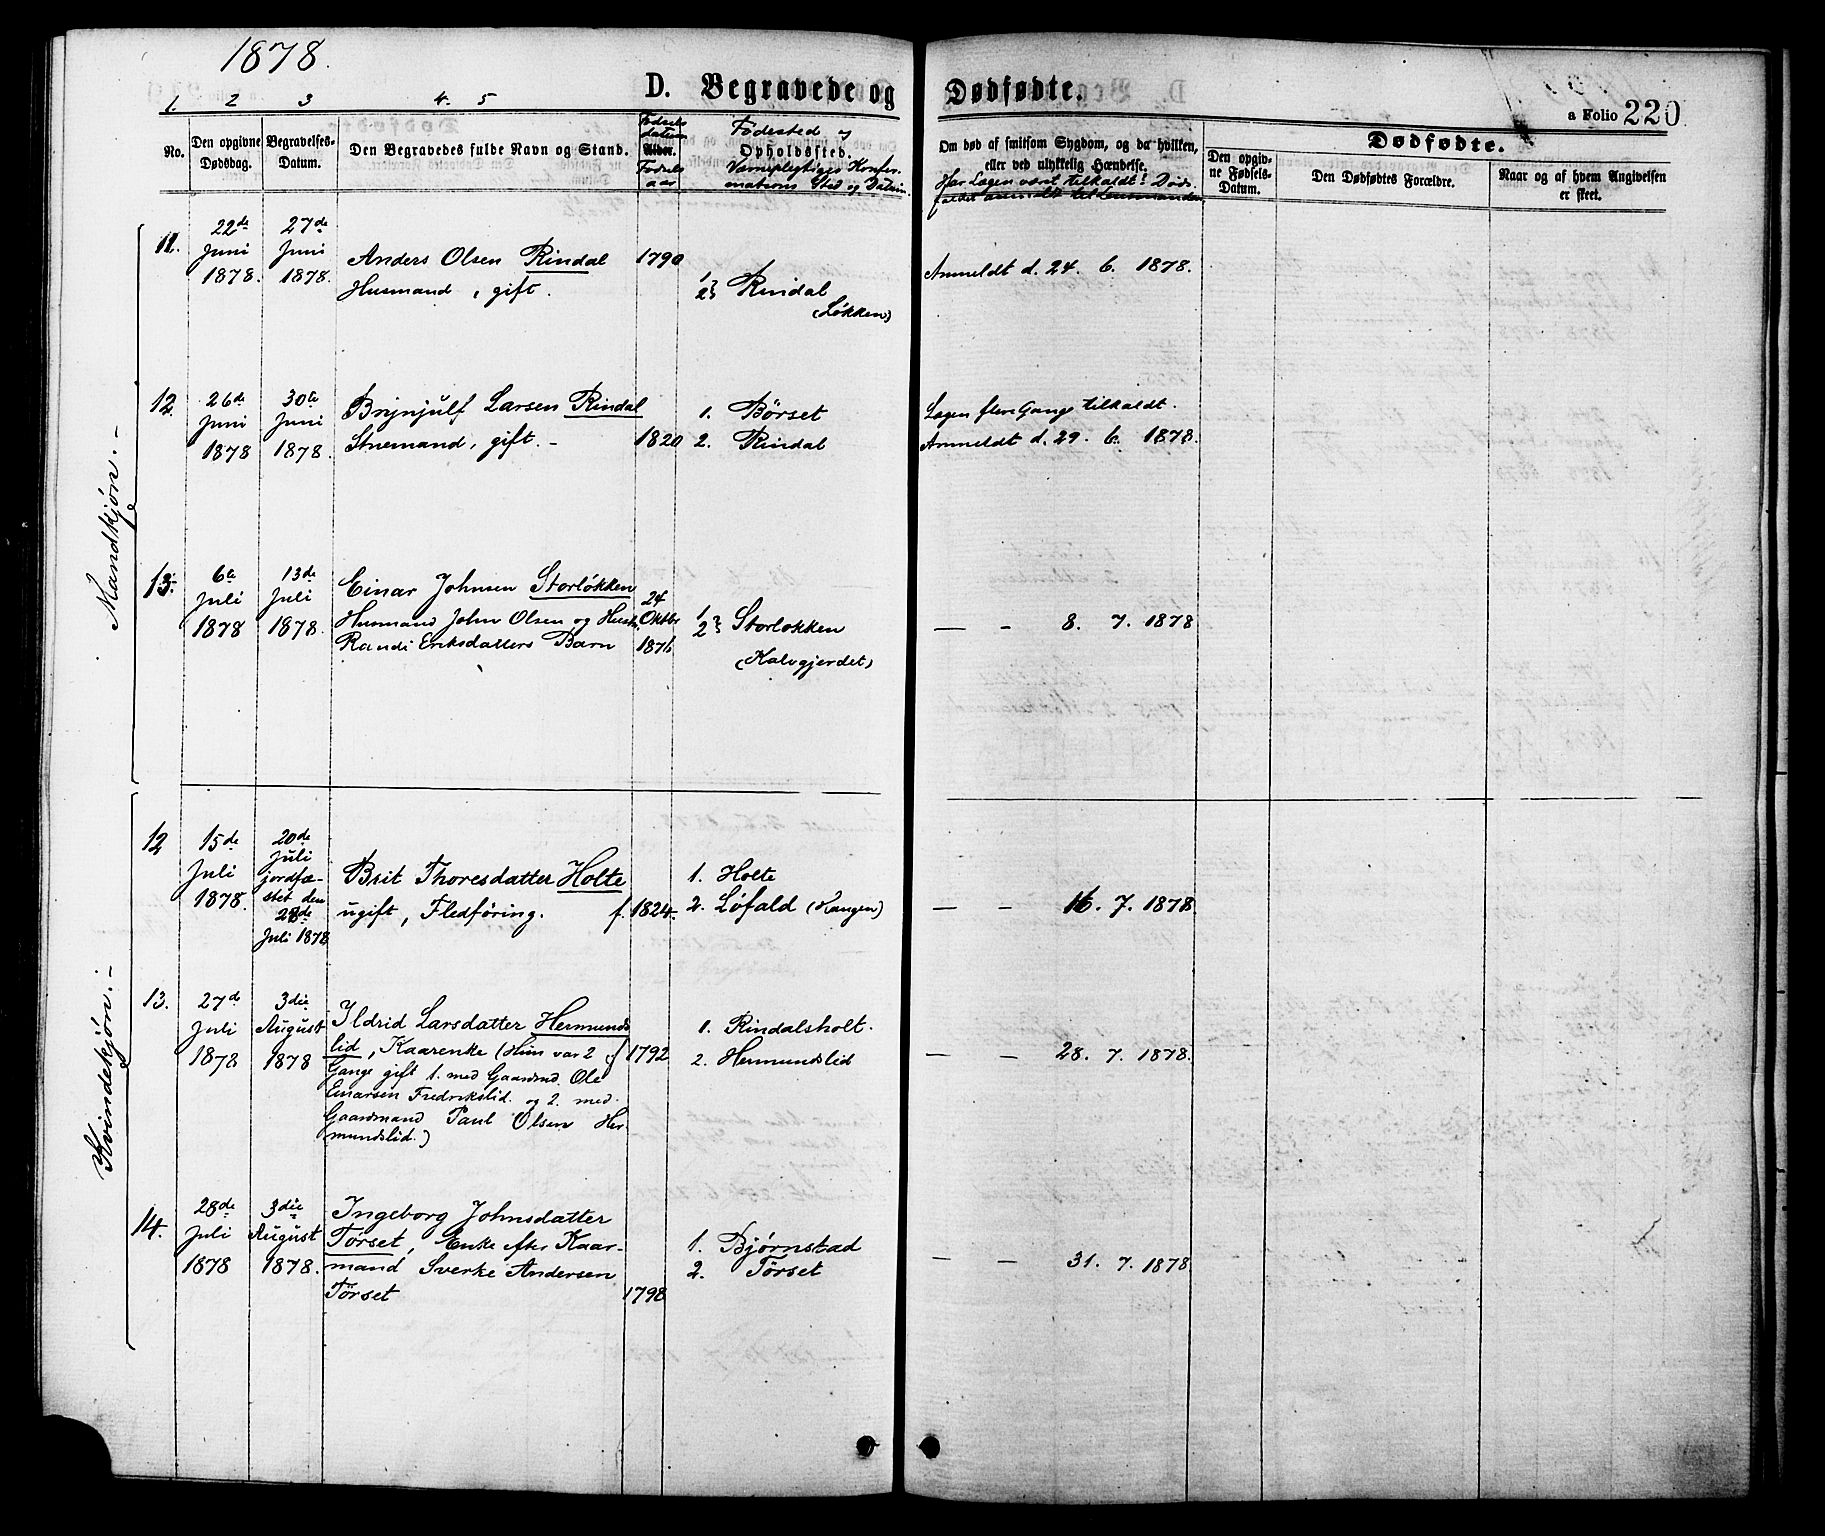 1878.
D. Begravede og Dødfødte.
a Folio 220
1. 2 3 4. 5
No.
Den opgivne Dødsdag.
Begravelses-Datum.
Den Begravedes fulde Navn og Stand.
Fødsels
datum
Alder.
Fødsels
aar
Fødested og
Opholdssted.
Værnepligtiges Konfir-
mations Sted og Datum.
Om død af smitsom Sygdom, og da hvilken,
eller ved ulykkelig Hændelse.
Har Lægen været tilkaldt? Døds-
faldet anmeldt til Lensmanden
Dødfødte.
Den opgiv-
ne Fødsels-
Datum.
Den Dødfødtes Forældre.
Naar og af hvem Angivelsen
er skeet.
Mandkjøn. -
11.
22de
Juni
1878.
27de
Juni
1878.
Anders Olsen Rindal
Husmand, gift.
1790
1 } 2 } Rindal
(Løkken)
Anmeldt d. 24. 6. 1878.
12.
26de
Juni
1878
30te
Juni
1878.
Brynjulf Larsen Rindal
Stuemand, gift. -
1820
1. Børset
2. Rindal
Lægen flere Gange tilkaldt.
Anmeldt d. 29. 6. 1878.
13.
6te
Juli
1878
13de
Juli
1878.
Einar Johnsen Storløkken
Husmand John Olsen og Hustr.
Randi Eriksdatters Barn
24
Oktbr
1876
1 } 2 } Storløkken
(Kalvgjerdet)
— - 8. 7. 1878
Kvindekjøn. -
12
15de
Juli
1878.
20de
Juli
jordfæ-
stet den
28de
Juli 1878
Brit Thoresdatter Holte
ugift, Fledføring.
f. 1824.
1. Holte
2. Løfald (Haugen)
— — 16. 7. 1878
13.
27de
Juli
1878
3die
August
1878
Ildrid Larsdatter Hermunds
lid, Kaarenke (Hun var 2
Gange gift 1. med Gaardmd. Ole
Einarsen Fredrikslid. og 2. med
Gaardmand Paul Olsen Her-
mundslid.)
f 1792
1. Rindalsholt.
2. Hermundslid
— — 28. 7. 1878.
14.
28de
Juli
1878
3die
August
1878.
Ingeborg Johnsdatter
Tørset, Enke efter Kaar-
mand Sverke Andersen
Tørset
1798
1. Bjørnstad
2. Tørset
— — 31. 7. 1878